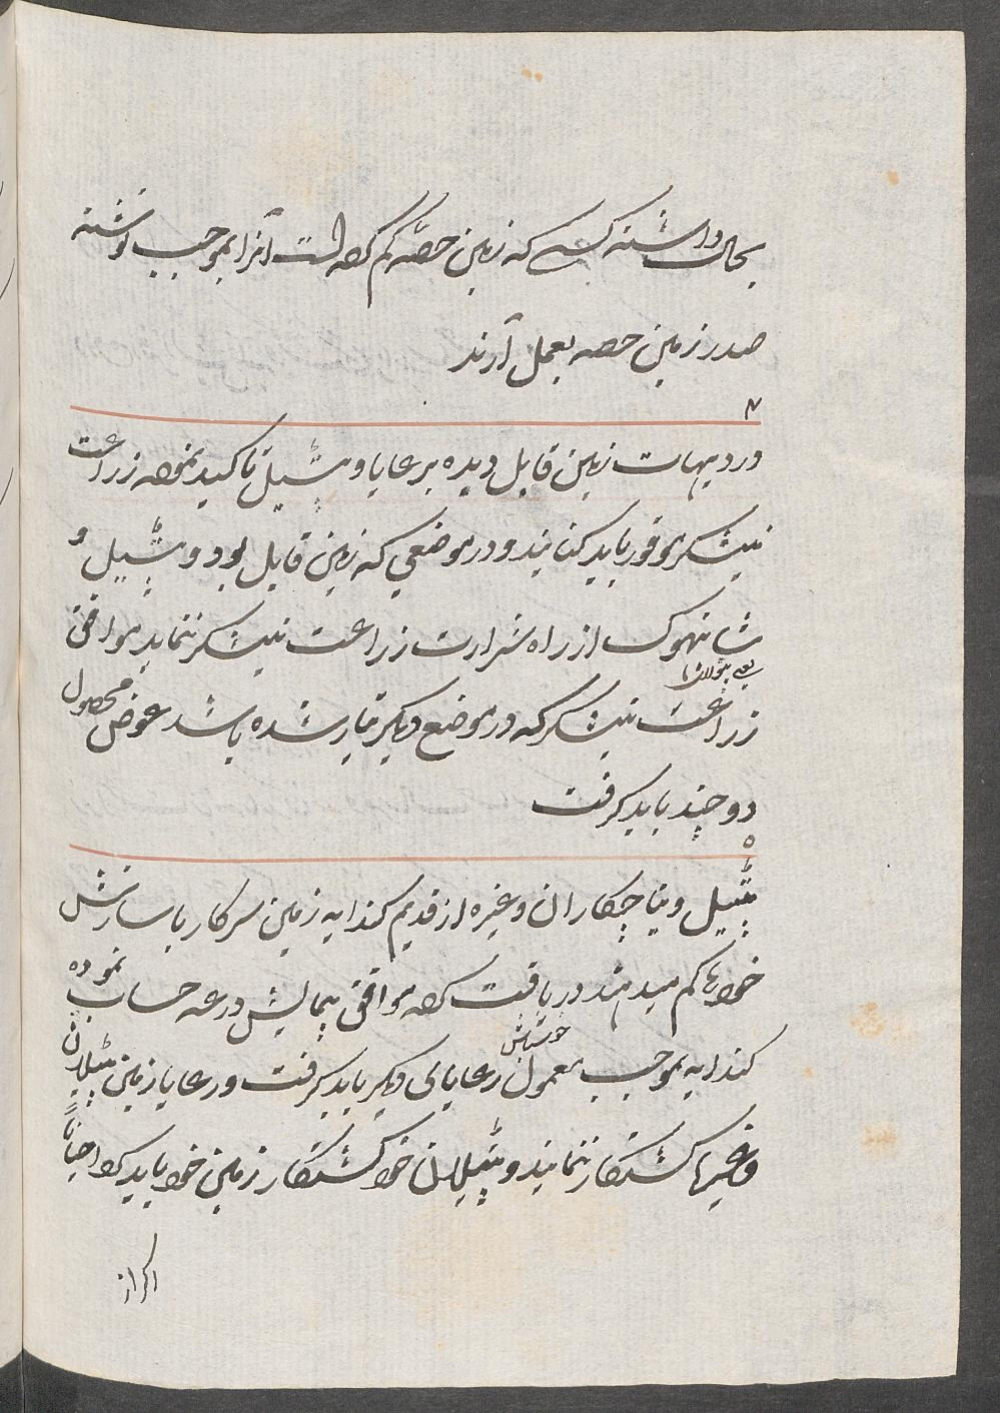 بحال داشته کسے که زمین حصه کم کرده است آنرا بموجب نوشته
صدر زمین حصه بعمل آرند
۴
در دیهات زمین قابل دیده بر عایا و پتیل تاکید نموده زراعت
نیشکر موفور باید کنانید و در موضعی که زمین قابل بود و پتیل و
شانبهوک از راه شرارت زراعت نیشکر ننماید موافق
زراعت نیشکر که در موضع دیکر تیار شده باشد عوض محصول
دو چند باید کرفت
۵
پتیل و پیاچکاران و غیره از قدیم کندایه زمین سرکار با سازش
خودها کم میدهند دریافت کرده موافق پیمایش درعه حساب نموده
کندایه بموجب معمول رعایای دیکر باید کرفت و رعایا زمین پتیلان
و غیرها کشتکار ننمایند و پتیلان خود کشتکار زمین خود باید کرد احیاناً
اکر از